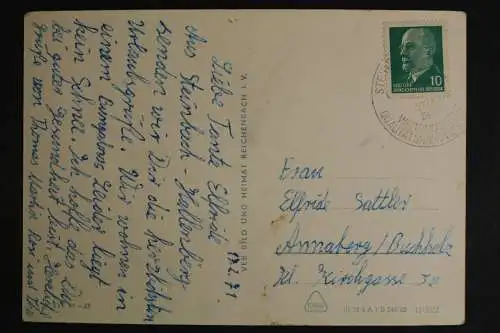 17.2.71
Liebe Tante Elfriede
Aus Steinbach-Hallenberg
senden wir Dir die herzlichsten
Urlaubsgrüße. Wir wohnen in
einem Bungalow. Leider liegt
kein Schnee. Ich hoffe das Du
bei guter Gesundheit bist. Herzliche
Grüße von Thomas Martin Rosi und
VEB BILD UND HEIMAT REICHENBACH I. V.
10
DEUTSCHE DEMOKRATISCHE REPUBLIK
Frau
Elfride Sattler
Annaberg/Buchholz
Kl. Kirchgasse